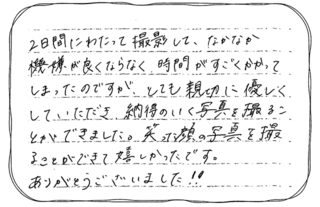 2日間にわたって撮影して、なかなか
機嫌が良くならなく 時間がすごくかかって
しまったのですが、とても親切に優しく
して、いただき 納得のいく写真を撮るこ
とができました。笑い顔の写真を撮
ることができて嬉しかったです。
ありがとうございました!!